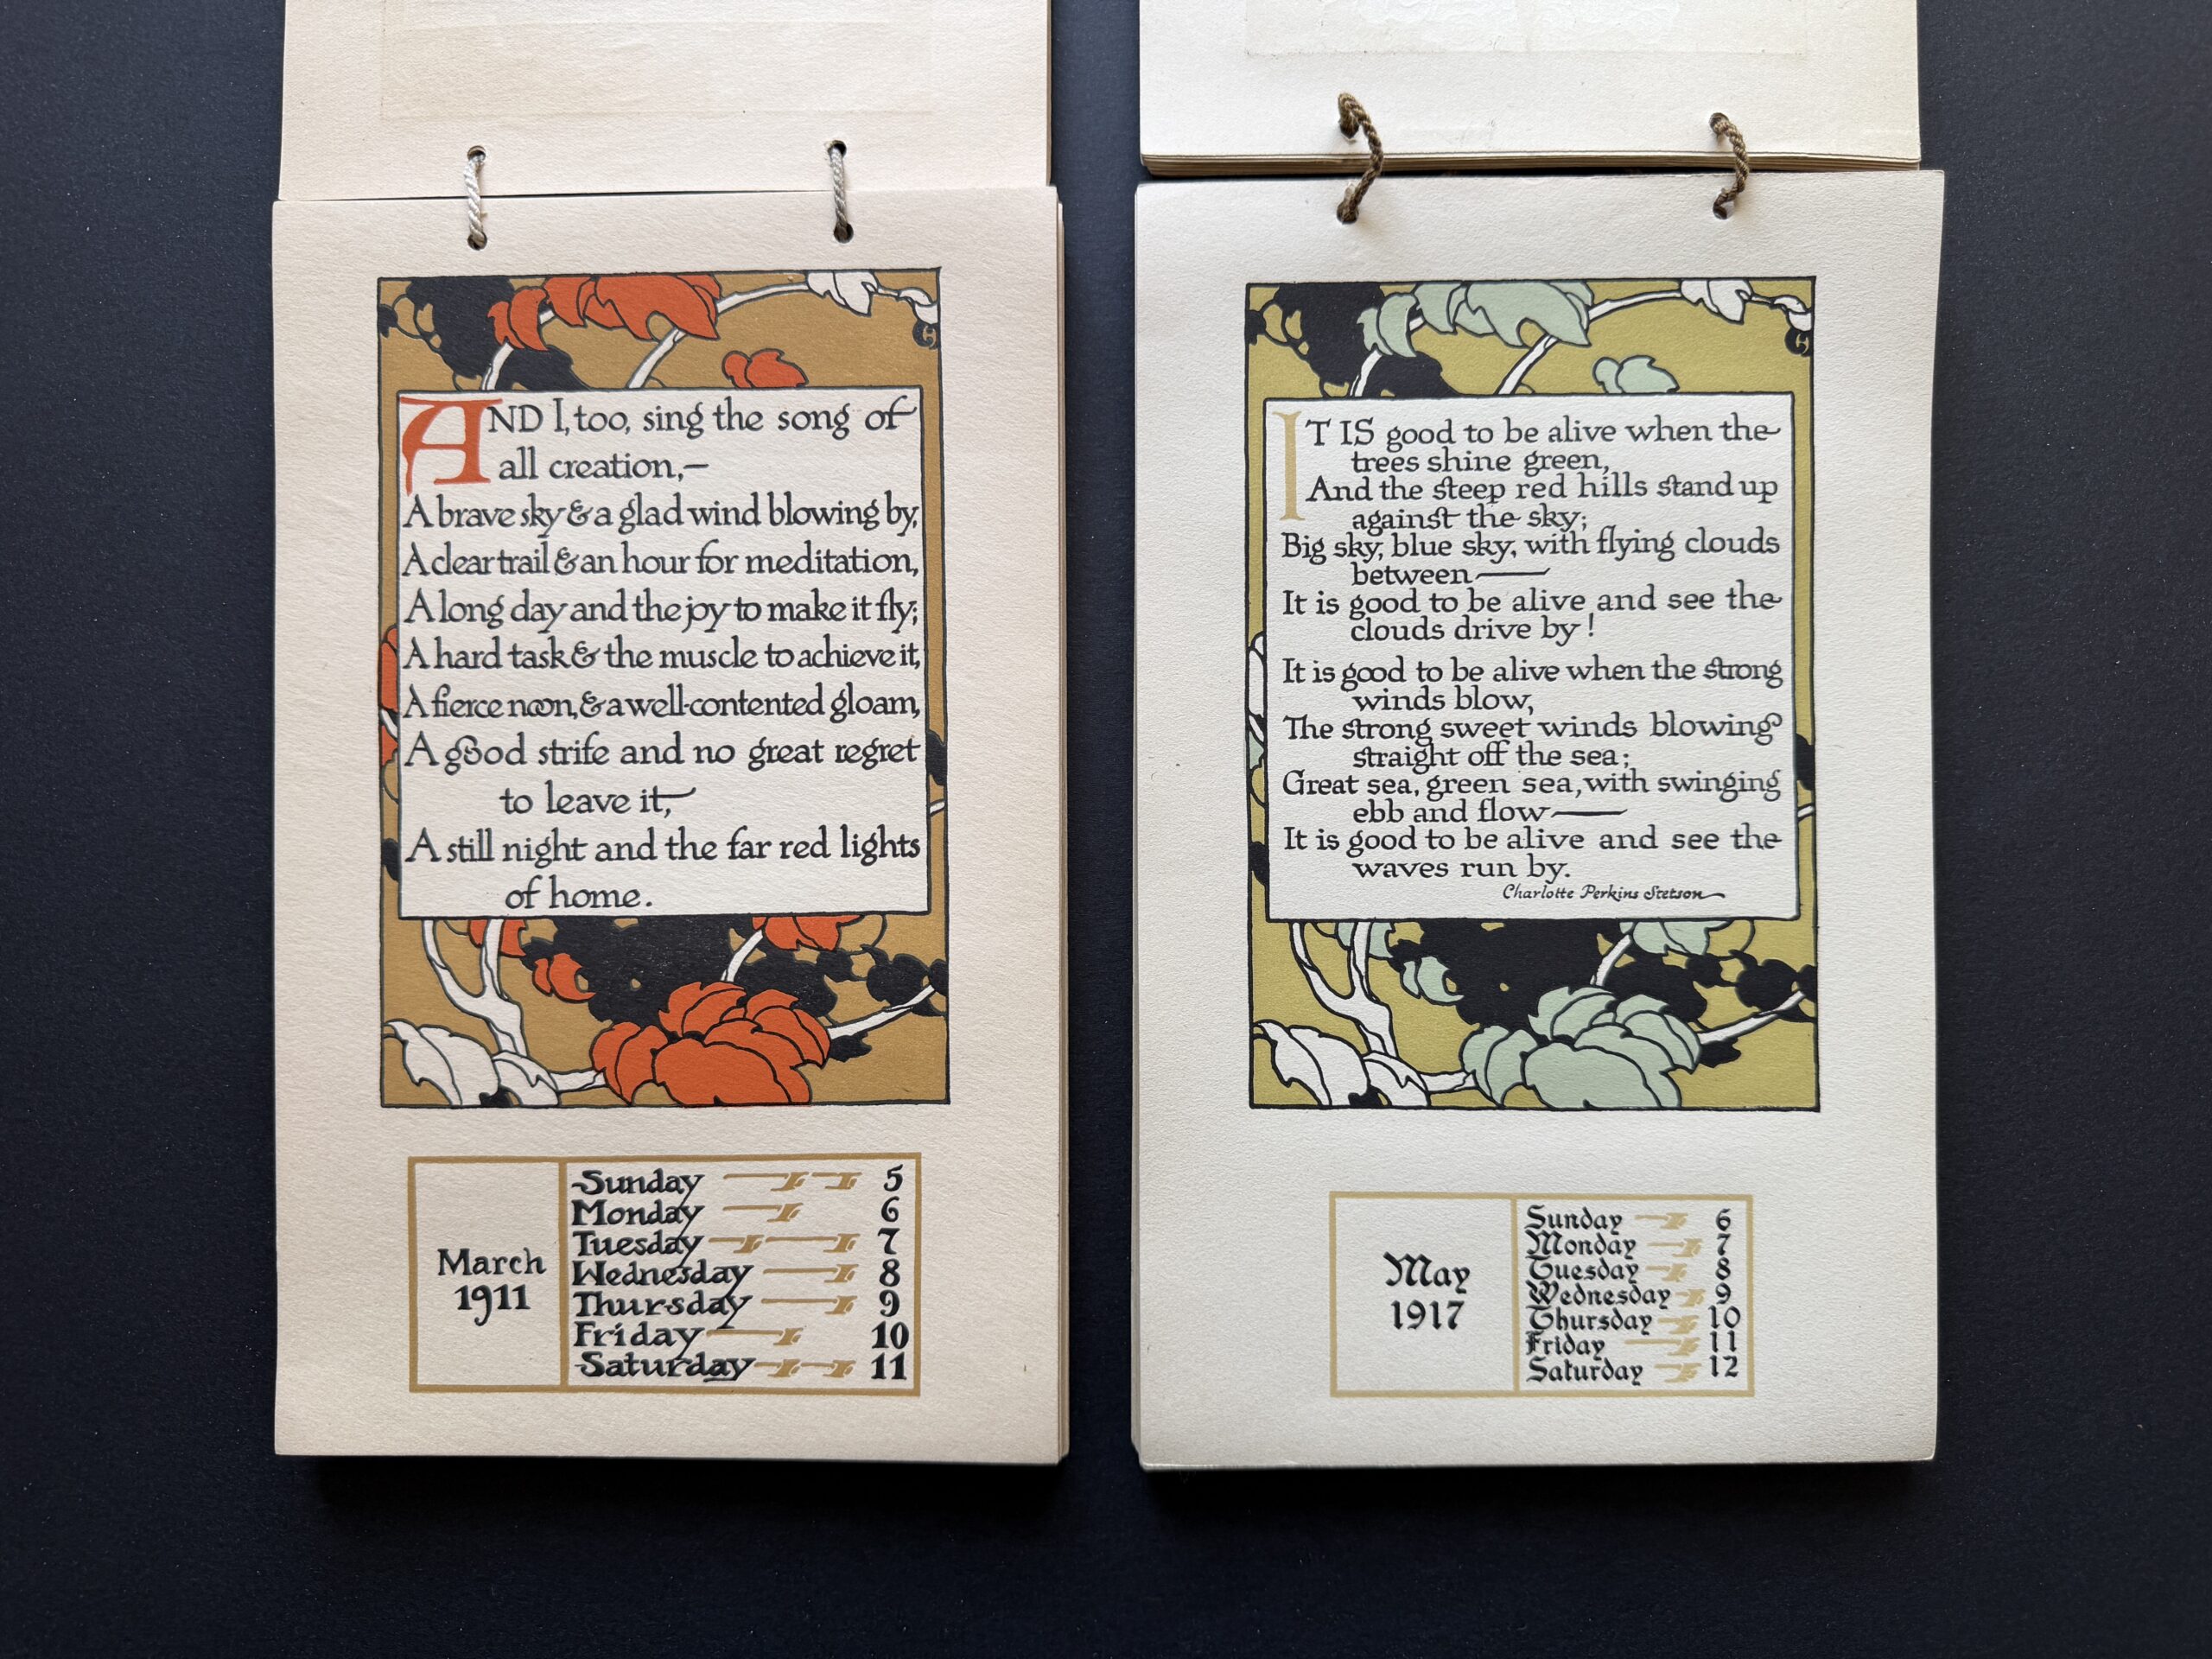 AND I, too, sing the song of
all creation,—
A brave sky & a glad wind blowing by,
A clear trail & an hour for meditation,
A long day and the joy to make it fly;
A hard task & the muscle to achieve it,
A fierce noon, & a well-contented gloam,
A good strife and no great regret
to leave it,—
A still night and the far red lights
of home.
March
1911
Sunday 5
Monday 6
Tuesday 7
Wednesday 8
Thursday 9
Friday 10
Saturday 11
IT IS good to be alive when the
trees shine green,
And the steep red hills stand up
against the sky;
Big sky, blue sky, with flying clouds
between —
It is good to be alive and see the
clouds drive by!
It is good to be alive when the strong
winds blow,
The strong sweet winds blowing
straight off the sea;
Great sea, green sea, with swinging
ebb and flow —
It is good to be alive and see the
waves run by.
Charlotte Perkins Stetson
May
1917
Sunday 6
Monday 7
Tuesday 8
Wednesday 9
Thursday 10
Friday 11
Saturday 12